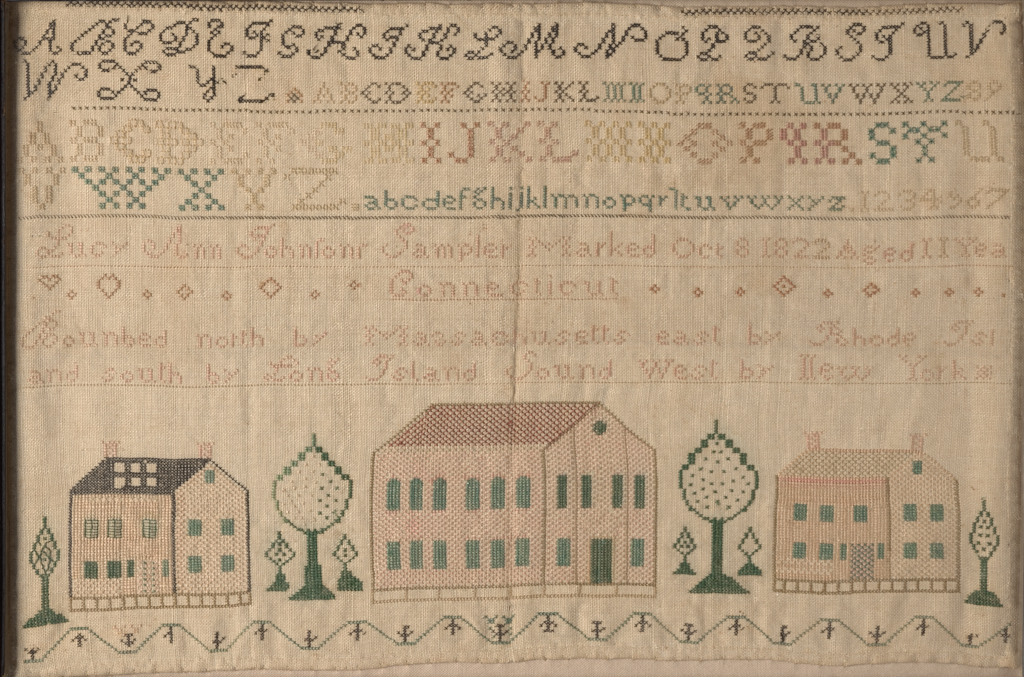 A B C D E F G H I K L M N O P Q R S T U V
W X Y Z A B C D E F G H I J K L M N O P Q R S T U V W X Y Z 8 9
A B C D E F G H I J K L M N O P Q R S T U
V W X Y Z a b c d e f g h i j k l m n o p q r ſ t u v w x y z 1 2 3 4 5 6 7
Lucy Ann Johnſons Sampler Marked Oct 8 1822 Aged 11 Yea
Connecticut
Bounbed north by Massachusetts east by Rhode Isl
and south by Long Island Sound West by New York